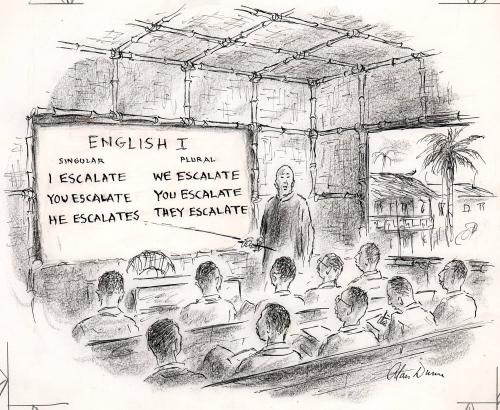 ENGLISH I
SINGULAR PLURAL
I ESCALATE WE ESCALATE
YOU ESCALATE YOU ESCALATE
HE ESCALATES THEY ESCALATE
Alan Dunn